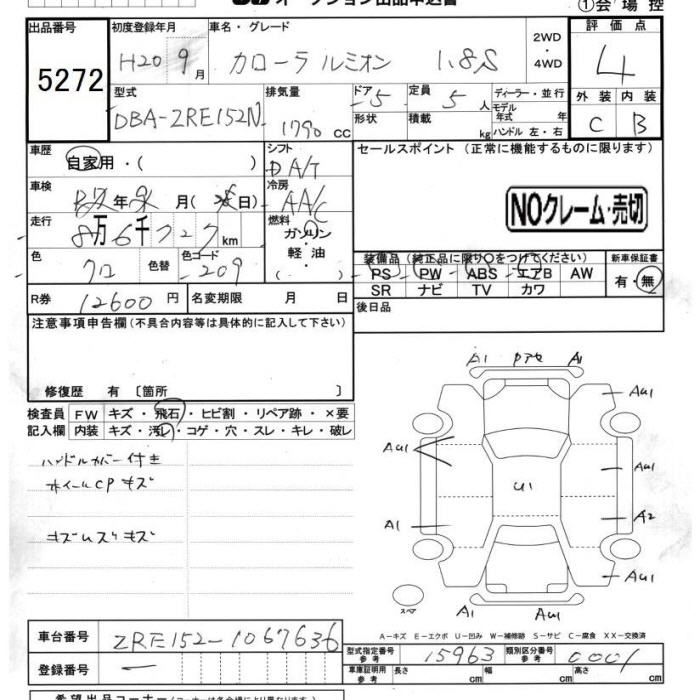 オークション出品申込書
①会場控
出品番号
5272
初度登録年月
H20 9月
車名・グレード
カローラルミオン 1.8S
2WD
・
4WD
評価点
4
型式
DBA-ZRE152N
排気量
1790 cc
ドア
5
形状
定員
5 人
積載
kg
ディーラー・並行
モデル年式 年
ハンドル 左・右
外装 内装
C B
車歴
自家用・( )
シフト
DA/T
セールスポイント (正常に機能するものに限ります)
車検
年 月 ( 日)
冷房
AA/C
NOクレーム・売切
走行
8万6千727km
燃料
ガソリン
・
軽・油
( )
色
クロ
色替
色コード
209
装備品(純正品に限り○をつけてください)
PS PW ABS エアB AW
SR ナビ TV カワ
新車保証書
有・無
R券 12600円
名変期限 月 日
後日品
注意事項申告欄(不具合内容等は具体的に記入して下さい)
修復歴 有 〔箇所 〕
検査員記入欄
FW キズ・飛石・ヒビ割・リペア跡・×要
内装 キズ・汚れ・コゲ・穴・スレ・キレ・破レ
ハンドルカバー付き
ホイールCPキズ
A1 A1
AU1
AU1
AU1
U1
A1
A2
AU1
スペア
A1 AU1
A-キズ E-エクボ U-凹み W-補修跡 S-サビ C-腐食 XX-交換済
車台番号
ZRE152-1067636
登録番号
—
型式指定番号
参考
15963
類別区分番号
参考
0001
車庫証明用
参考
長さ cm
幅 cm
高さ cm
希望出品コーナー(コーナーは各会場により異なります)